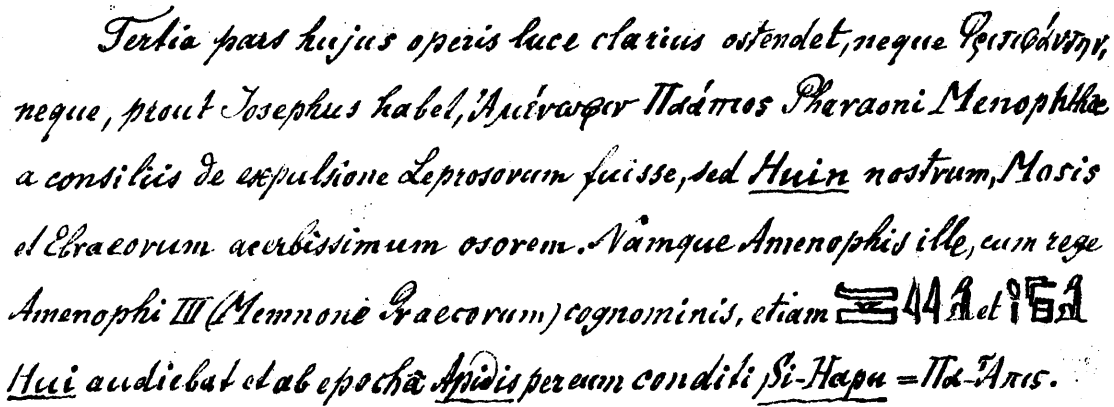 Tertia pars hujus operis luce clarius ostendet, neque
neque, prout Josephus habet, Ἀμένωφιν Παάπιος Pharaoni Menophthae
a consiliis de expulsione Leprosorum fuisse, sed Huin nostrum, Mosis
et Ebraeorum acerbissimum osorem. Namque Amenophis ille, cum rege
Amenophi III (Memnone Graecorum) cognominis, etiam et
Hui audiebat et ab epocha Apidis per eum conditi Si-Hapu = Πα-Ἆπις.